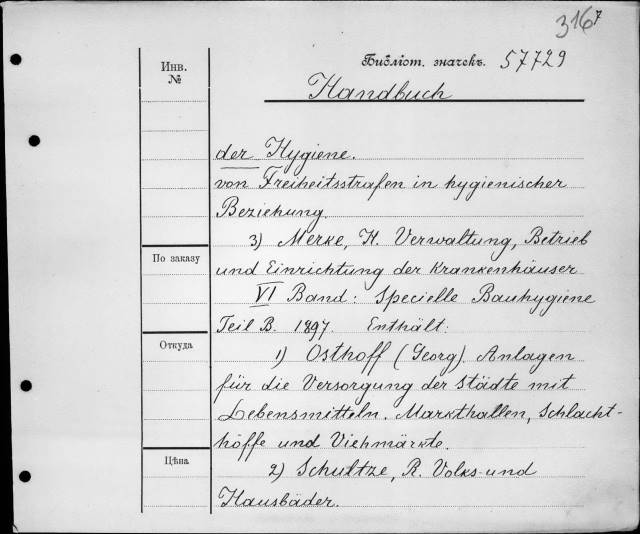 316 7
Инв.
№
Библіот. значекъ. 57729
Handbuch
der Hygiene.
von Freiheitsstrafen in hygienischer
Beziehung.
3) Merke, H. Verwaltung, Betrieb
По заказу
und Einrichtung der Krankenhäuser
VI Band: Specielle Bauhygiene
Teil B. 1897. Enthält:
Откуда
1) Osthoff (Georg). Anlagen
für die Versorgung der Städte mit
Lebensmitteln. Markthallen, Schlacht-
höffe und Viehmärkte.
Цѣна
2) Schultze, R. Volks- und
Hausbäder.